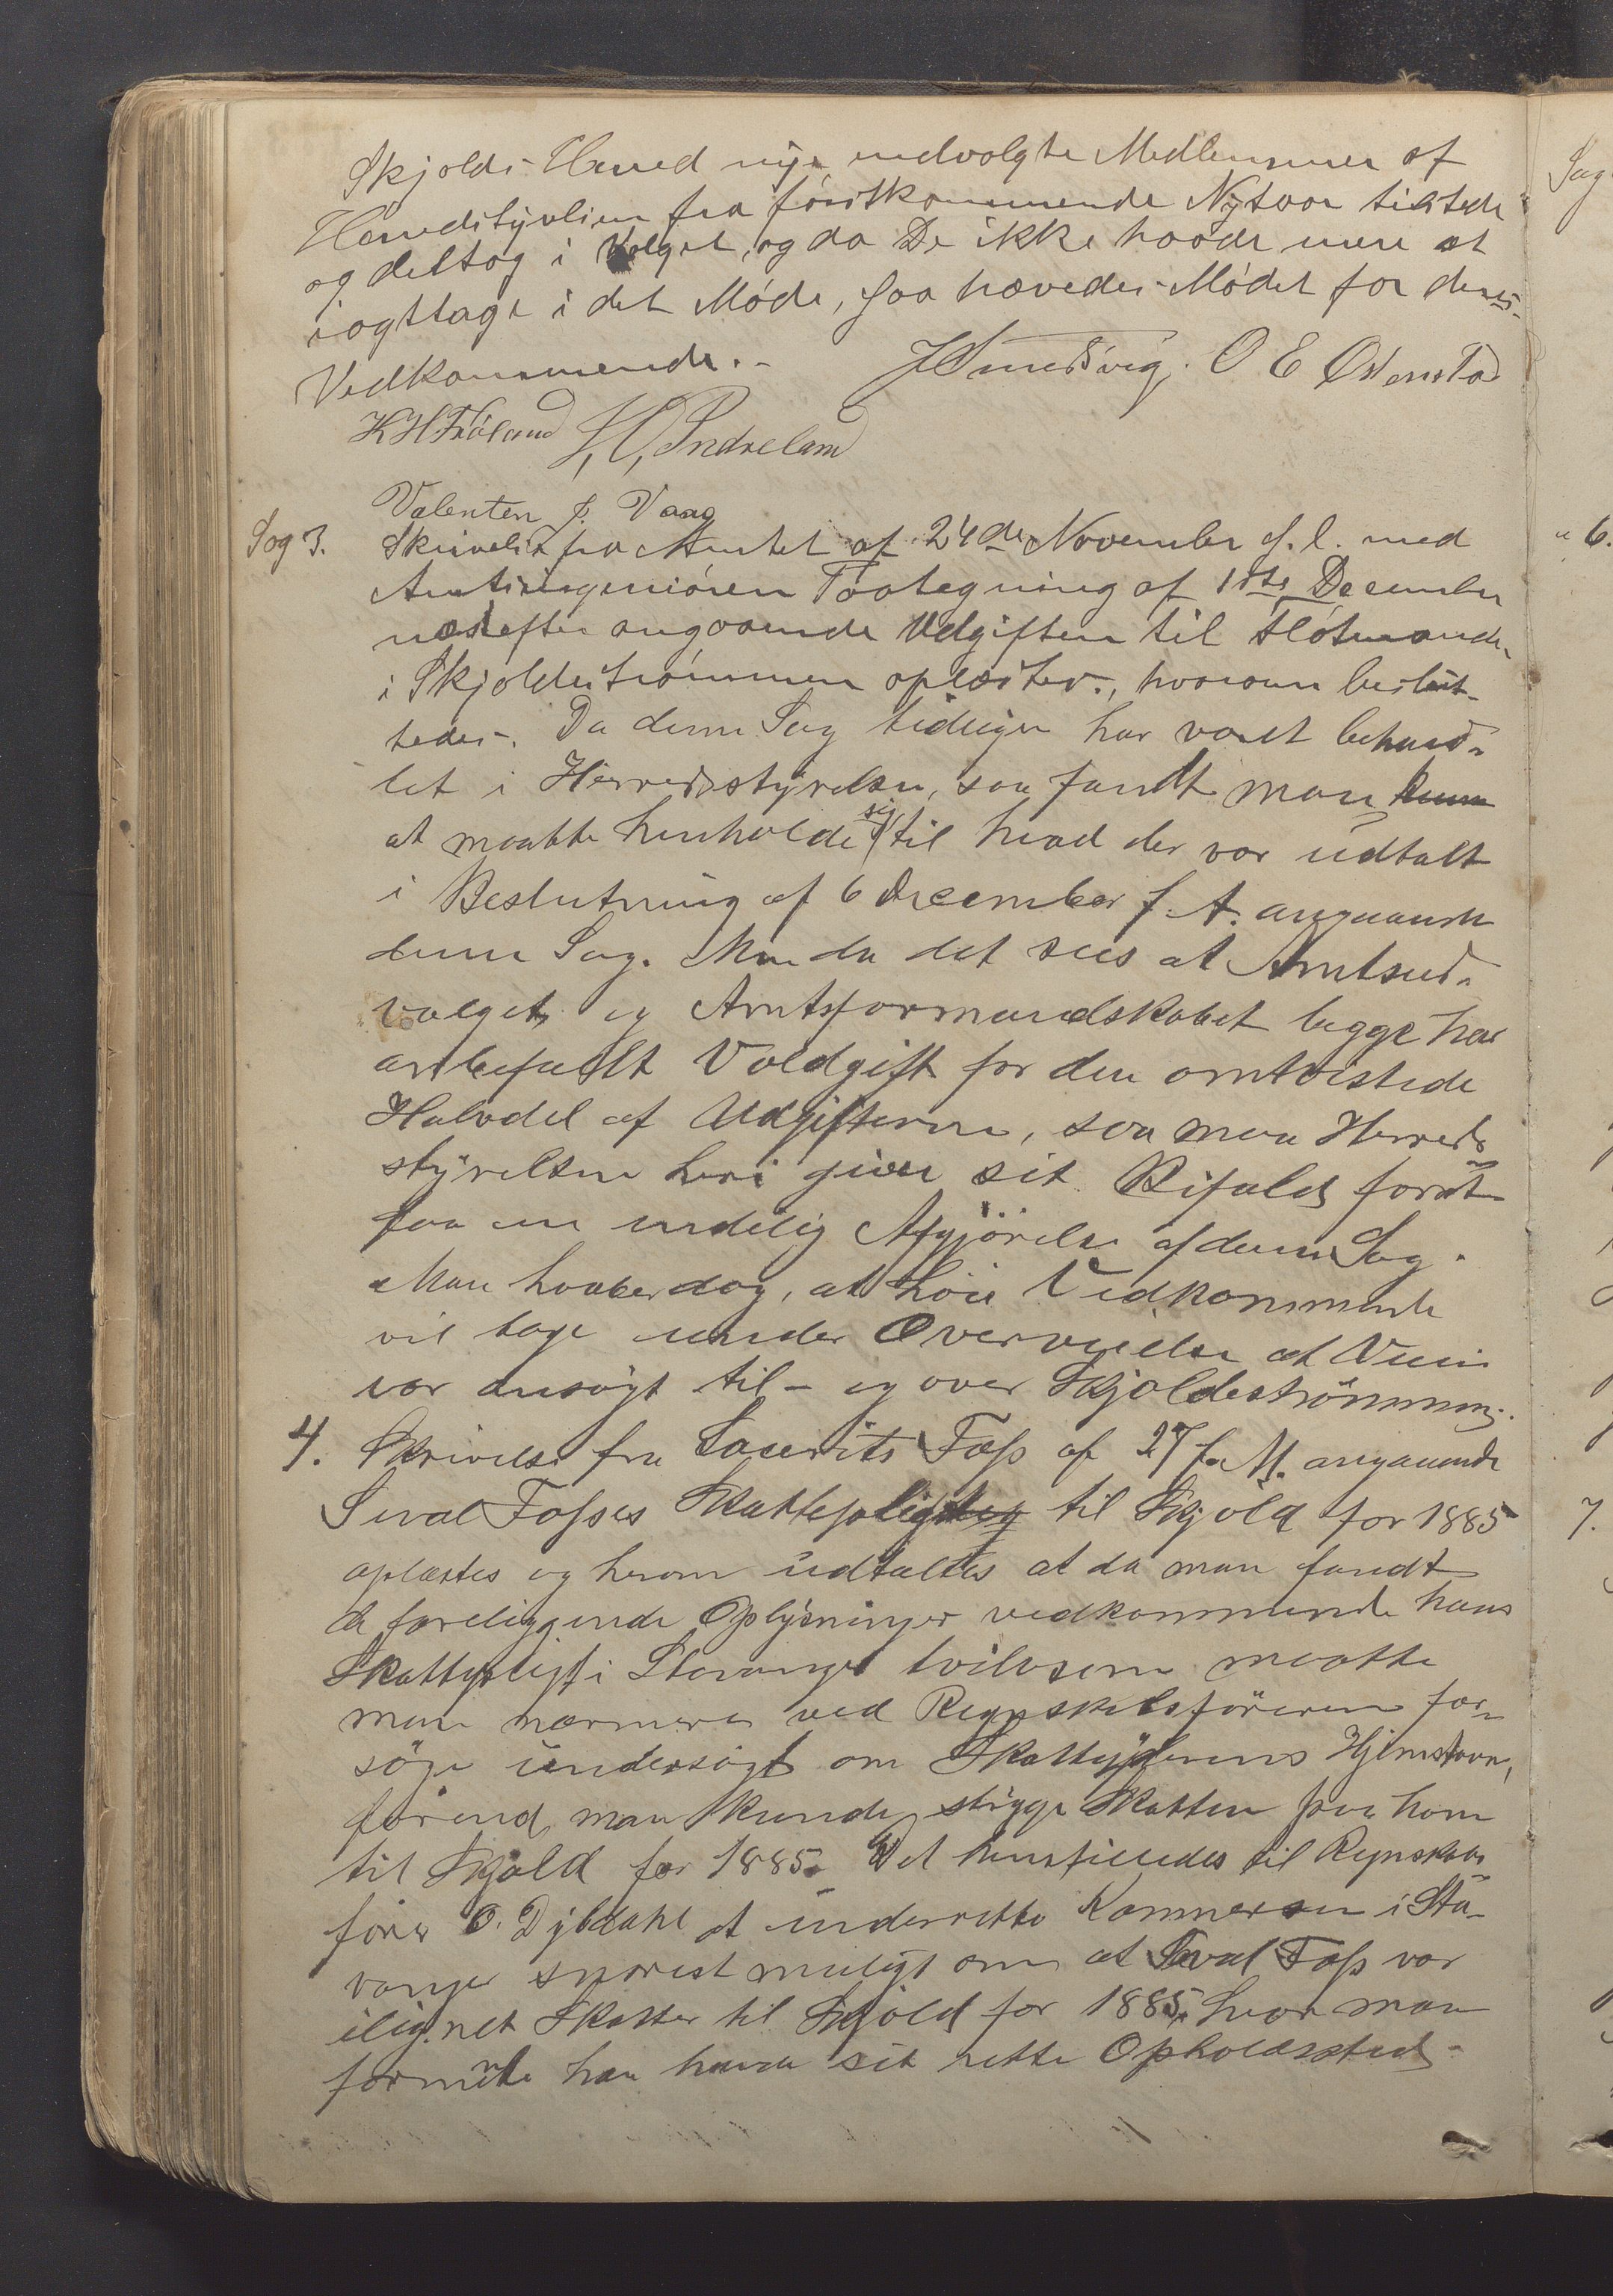 Skjolds Herred nye undvalgte Medlemmer af
Herredstyrelsen fra förstkommende Nytaar tilstede
og deltog i Valget, og da De ikke havde mere at
iagttage i det Möde, saa hævedes Mödet for deres
Vedkommende.-
H Smedsvig. O E Østenstad
K H Fröland H, O, Indreland
Valentin J. Vaag
Sag 3. Skrivelse fra Amtet af 24de November d.l. med
Amtsingeniören Paategning af 11te December
næstefter angaaende Udgiften til Flötmænde
i Skjoldeströmmen oplæstes, hvorom beslut-
tedes. Da denne Sag tidligere har været behand-
let i Herredsstyrelsen, saa fandt man
at maatte henholde sig til hvad der var udtalt
i Beslutning af 6 December f. A. angaaende
denne Sag. Men da det sees at Amtsud-
valget og Amtsformandskabet begge har
anbefalt Voldgift for den omtvistede
Halvdel af Udgifterne, saa maa Herreds
styrelsen heri give sit Bifald for at
faa en endelig Afgjörelse af denne Sag.
Man haaber dog, at höie Vedkommende
vil tage under Overveielse at Veien
var ansögt til - og over Skjoldeströmmen.
4. Skrivelse fra Laurits Foss af 27 f. M. angaaende
Sival Fosses Skattepligt til Skjold for 1885
oplæstes og herom udtaltes at da man fandt
de foreliggende Oplysninger vedkommende hans
Skattepligt i Stavanger tvilsom maatte
man nærmere ved Regnskabsföreren for-
söge undersögt om Skatteyderens Hjemstavn,
förend man kunde strÿge Skatten paa ham
til Skjold for 1885. Det henstilledes til Regnskabs-
förer O. Dybdahl at underrette Kæmneren i Sta-
vanger snarest muligt om at Sival Foss var
ilignet Skatter til Skjold for 1885, hvor man
formente han havde sit rette Opholdssted.
Sag
" 6.
7.